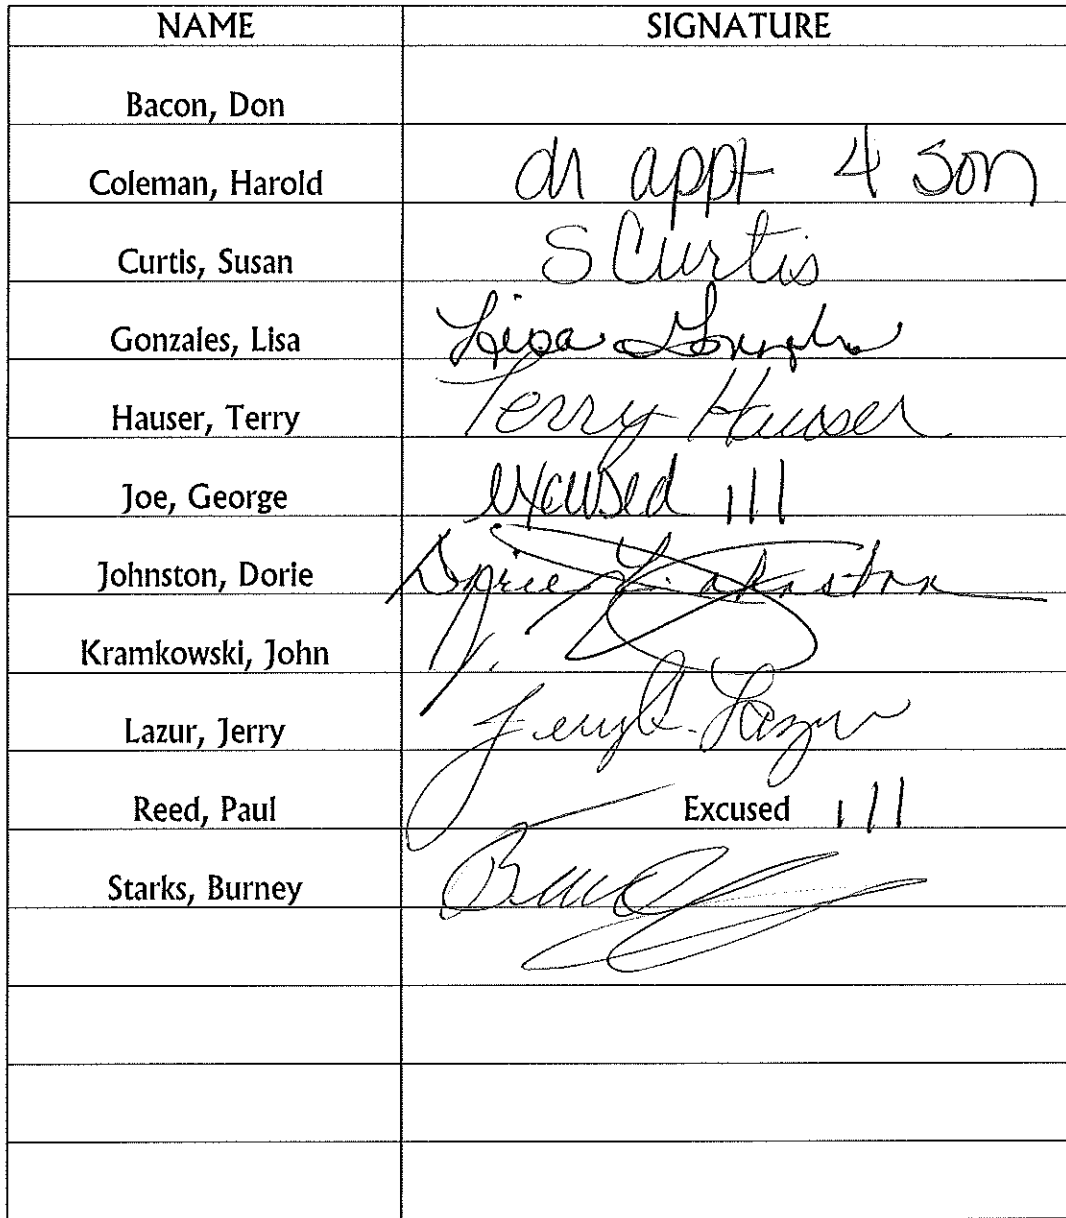 NAME SIGNATURE
Bacon, Don
Coleman, Harold dr appt 4 son
Curtis, Susan S Curtis
Gonzales, Lisa Lisa
Hauser, Terry Terry Hauser
Joe, George excused 111
Johnston, Dorie Dorie Johnston
Kramkowski, John J.
Lazur, Jerry Jerry C. Lazur
Reed, Paul Excused 111
Starks, Burney